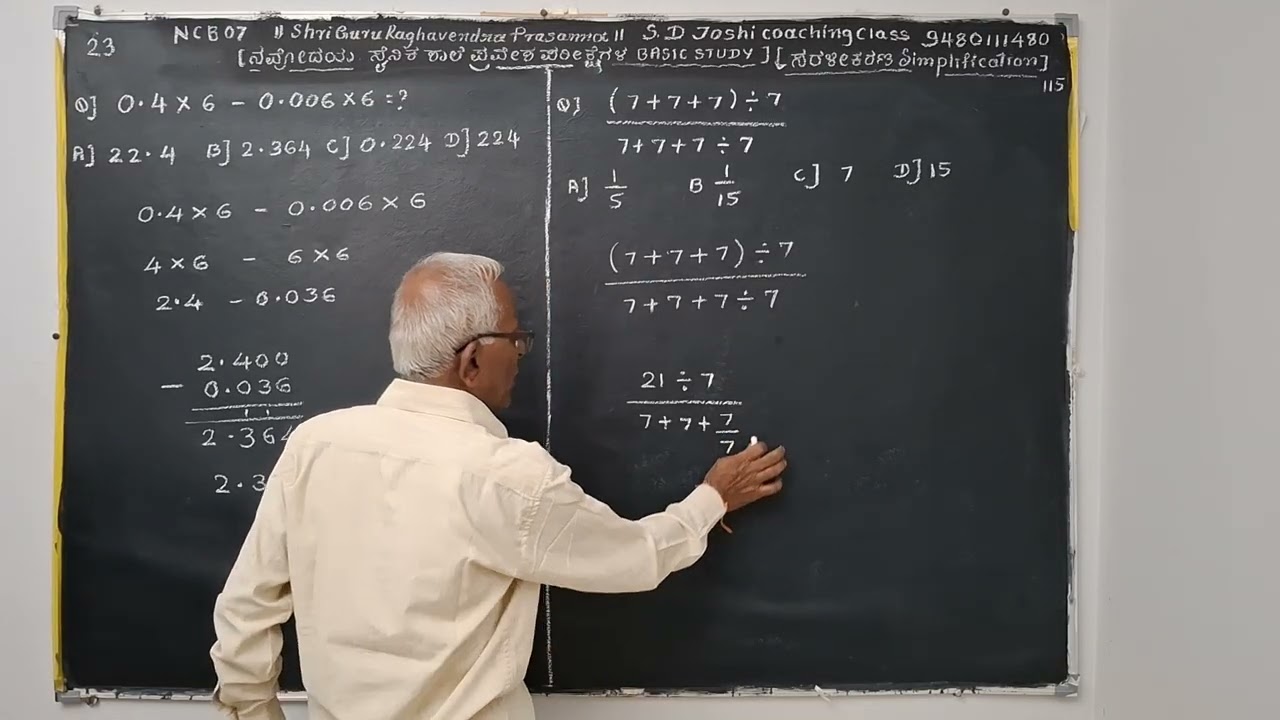 23 NCB07 || Shri Guru Raghavendra Prasanna || S.D Joshi coaching Class 9480111480
[ನವೋದಯ ಸೈನಿಕ ಶಾಲೆ ಪ್ರವೇಶ ಪರೀಕ್ಷೆಗಳ BASIC STUDY] [ಸರಳೀಕರಣ Simplification]
115
Q] 0.4 × 6 - 0.006 × 6 = ?
A] 22.4 B] 2.364 C] 0.224 D] 224
0.4 × 6 - 0.006 × 6
4 × 6 - 6 × 6
2.4 - 0.036
2.400
- 0.036
2.364
2.3
Q] (7+7+7) ÷ 7
7+7+7 ÷ 7
A] 1/5 B 1/15 C] 7 D] 15
(7+7+7) ÷ 7
7+7+7 ÷ 7
21 ÷ 7
7+7+7/7